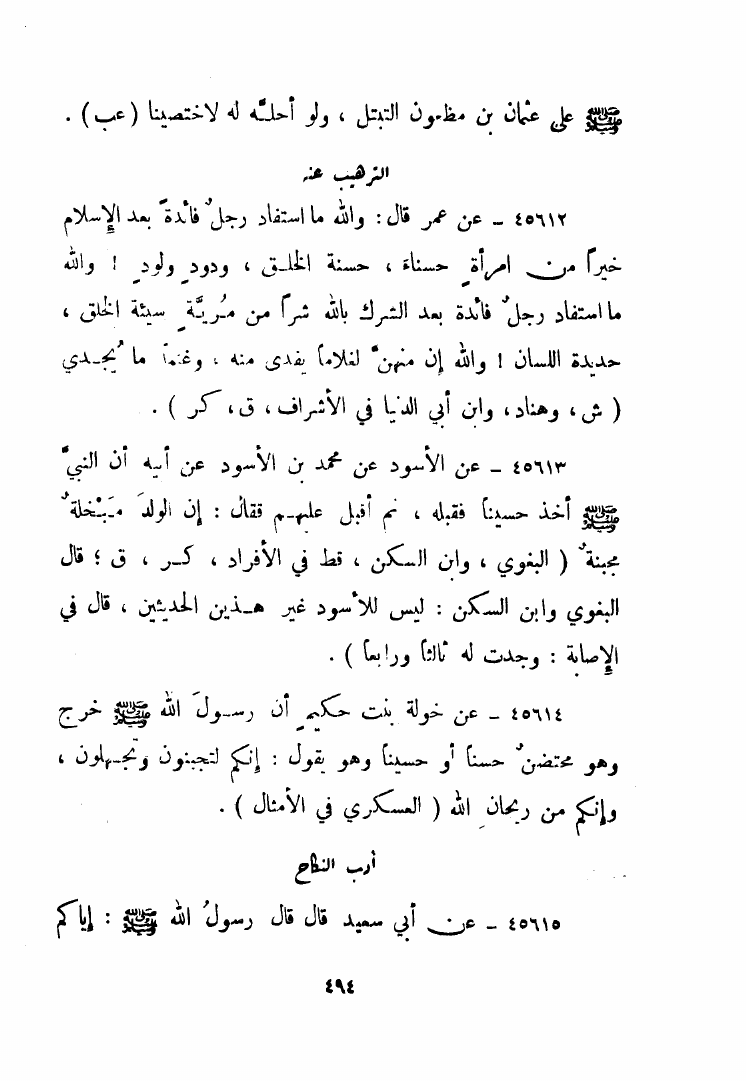 ﷺ على عثمان بن مظعون التبتل ، ولو أحلَّه له لاختصينا ( عب ) .
الترهيب عنه
٤٥٦١٢ ـ عن عمر قال : والله ما استفاد رجلٌ فائدةً بعد الإسلام
خيراً من امرأةٍ حسناءَ ، حسنة الخلـق ، ودودٍ ولودٍ ! والله
ما استفاد رجلٌ فائدة بعد الشرك بالله شراً من مُريَّةٍ سيئة الخلق ،
حديدة اللسان ! والله إن منهنَّ لغلاماً يفدى منه ، وغنماً ما يُجـدي
( ش ، وهناد ، وابن أبي الدنيا في الأشراف ، ق ، كر ) .
٤٥٦١٣ ـ عن الأسود عن محمد بن الأسود عن أبيه أن النبيَّ
ﷺ أخذ حسيناً فقبله ، ثم أقبل عليهـم فقال : إن الولدَ مَبْخلةٌ
مجبنةٌ ( البغوي ، وابن السكن ، قط في الأفراد ، كـر ، ق ؛ قال
البغوي وابن السكن : ليس للأسود غير هـذين الحديثين ، قال في
الإصابة : وجدت له ثالثاً ورابعاً ) .
٤٥٦١٤ ـ عن خولة بنت حكيمٍ أن رسـولَ الله ﷺ خرج
وهو محتضنٌ حسناً أو حسيناً وهو يقول : إنكم لتجبنون وتجـهلون ،
وإنكم من ريحانِ الله ( العسكري في الأمثال ) .
أدب النكاح
٤٥٦١٥ ـ عن أبي سعيد قال قال رسولُ الله ﷺ : إياكم
٤٩٤